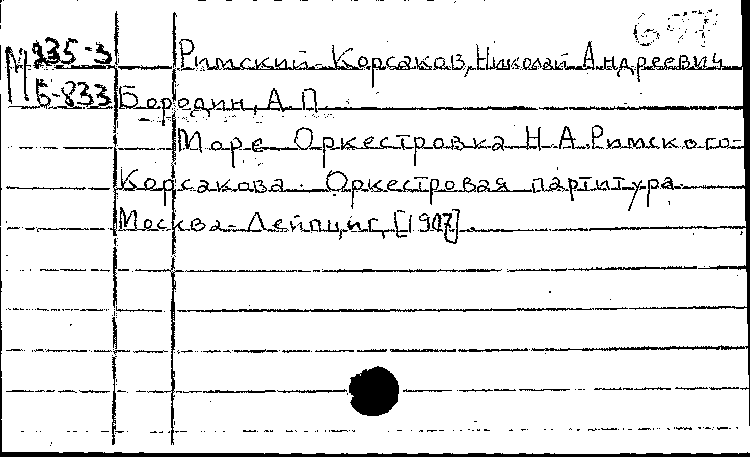 697
М 935-3 Римский-Корсаков, Николай Андреевич
Б-833 Бородин, А. П.
Море. Оркестровка Н. А. Римского-
Корсакова. Оркестровая партитура.
Москва-Лейпциг, [1907].